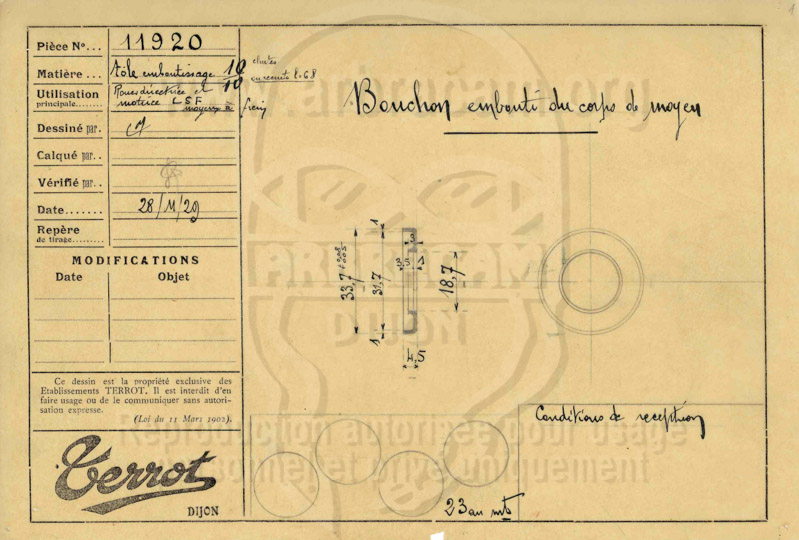 1
Pièce No... 11920
Matière... tôle emboutissage 10
Utilisation principale... Roues directrice et 10
motrice LSF
moyeux à frein
Dessiné par.
Calqué par..
Vérifié par..
Date....... 28/11/29
Repère
de tirage.........
MODIFICATIONS
Date Objet
Ce dessin est la propriété exclusive des
Etablissements TERROT. Il est interdit d'en
faire usage ou de le communiquer sans autori-
sation expresse.
(Loi du 11 Mars 1902).
Terrot
DIJON
Bouchon embouti du corps de moyeu
1
3
33,7
31,7
18,7
1
4,5
Conditions de réception
23 au
www.arbracam.org
ARBRACAM
DIJON
Reproduction autorisée pour usage
personnel et privé uniquement